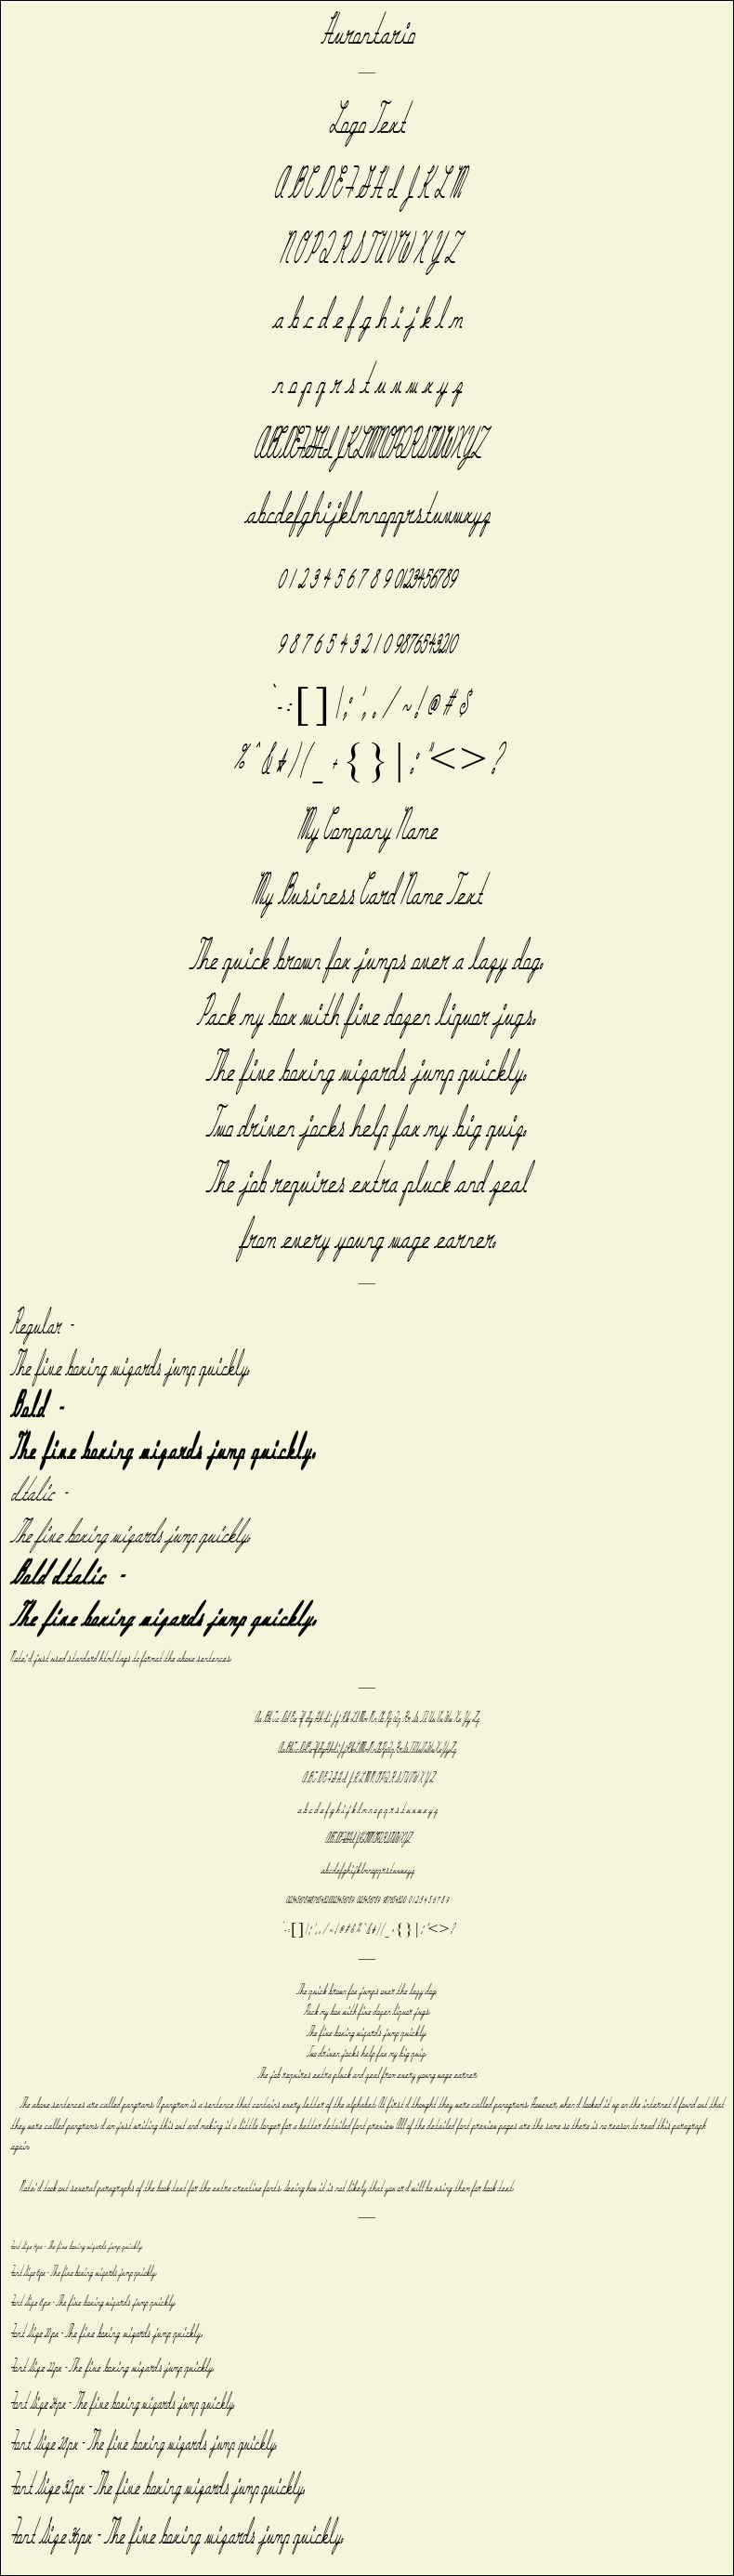 Hurontario
Logo Text
A B C D E F G H I J K L M
N O P Q R S T U V W X Y Z
a b c d e f g h i j k l m
n o p q r s t u v w x y z
ABCDEFGHIJKLMNOPQRSTUVWXYZ
abcdefghijklmnopqrstuvwxyz
0 1 2 3 4 5 6 7 8 9 0123456789
9 8 7 6 5 4 3 2 1 0 9876543210
` - = [ ] \ ; ' , . / ~ ! @ # $
% ^ & * ) ( _ + { } | : " < > ?
My Company Name
My Business Card Name Text
The quick brown fox jumps over a lazy dog.
Pack my box with five dozen liquor jugs.
The five boxing wizards jump quickly.
Two driven jocks help fax my big quiz.
The job requires extra pluck and zeal
from every young wage earner.
Regular -
The five boxing wizards jump quickly.
Bold -
The five boxing wizards jump quickly.
Italic -
The five boxing wizards jump quickly.
Bold Italic -
The five boxing wizards jump quickly.
Note; I just used standard html tags to format the above sentences.
Aa Bb Cc Dd Ee Ff Gg Hh Ii Jj Kk Ll Mm Nn Oo Pp Qq Rr Ss Tt Uu Vv Ww Xx Yy Zz
AaBbCcDdEeFfGgHhIiJjKkLlMmNnOoPpQqRrSsTtUuVvWwXxYyZz
A B C D E F G H I J K L M N O P Q R S T U V W X Y Z
a b c d e f g h i j k l m n o p q r s t u v w x y z
ABCDEFGHIJKLMNOPQRSTUVWXYZ
abcdefghijklmnopqrstuvwxyz
0 1 2 3 4 5 6 7 8 9
` - = [ ] \ ; ' , . / ~ ! @ # $ % ^ & * ) ( _ + { } | : " < > ?
The quick brown fox jumps over the lazy dog.
Pack my box with five dozen liquor jugs.
The five boxing wizards jump quickly.
Two driven jocks help fax my big quiz.
The job requires extra pluck and zeal from every young wage earner.
The above sentences are called pangrams. A pangram is a sentence that contains every letter of the alphabet. At first I thought they were called paragrams. However, when I looked it up on the internet I found out that
they were called pangrams. I am just writing this out and making it a little longer for a better detailed font preview. All of the detailed font preview pages are the same so there is no reason to read this paragraph
again.
Note; I took out several paragraphs of the book text for the extra creative fonts. Seeing how it is not likely that you or I will be using them for book text.
Font Size 14px - The five boxing wizards jump quickly.
Font Size 16px - The five boxing wizards jump quickly.
Font Size 18px - The five boxing wizards jump quickly.
Font Size 20px - The five boxing wizards jump quickly.
Font Size 22px - The five boxing wizards jump quickly.
Font Size 24px - The five boxing wizards jump quickly.
Font Size 28px - The five boxing wizards jump quickly.
Font Size 32px - The five boxing wizards jump quickly.
Font Size 36px - The five boxing wizards jump quickly.